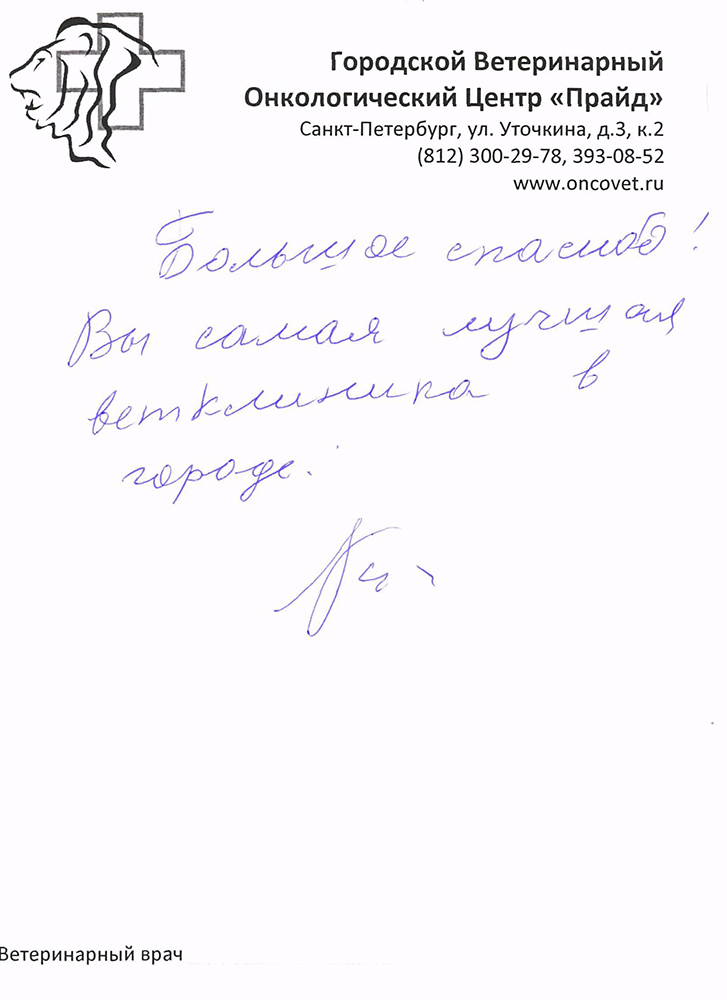 Городской Ветеринарный
Онкологический Центр «Прайд»
Санкт-Петербург, ул. Уточкина, д.3, к.2
(812) 300-29-78, 393-08-52
www.oncovet.ru
Большое спасибо!
Вы самая лучшая
ветклиника в
городе.
Ветеринарный врач